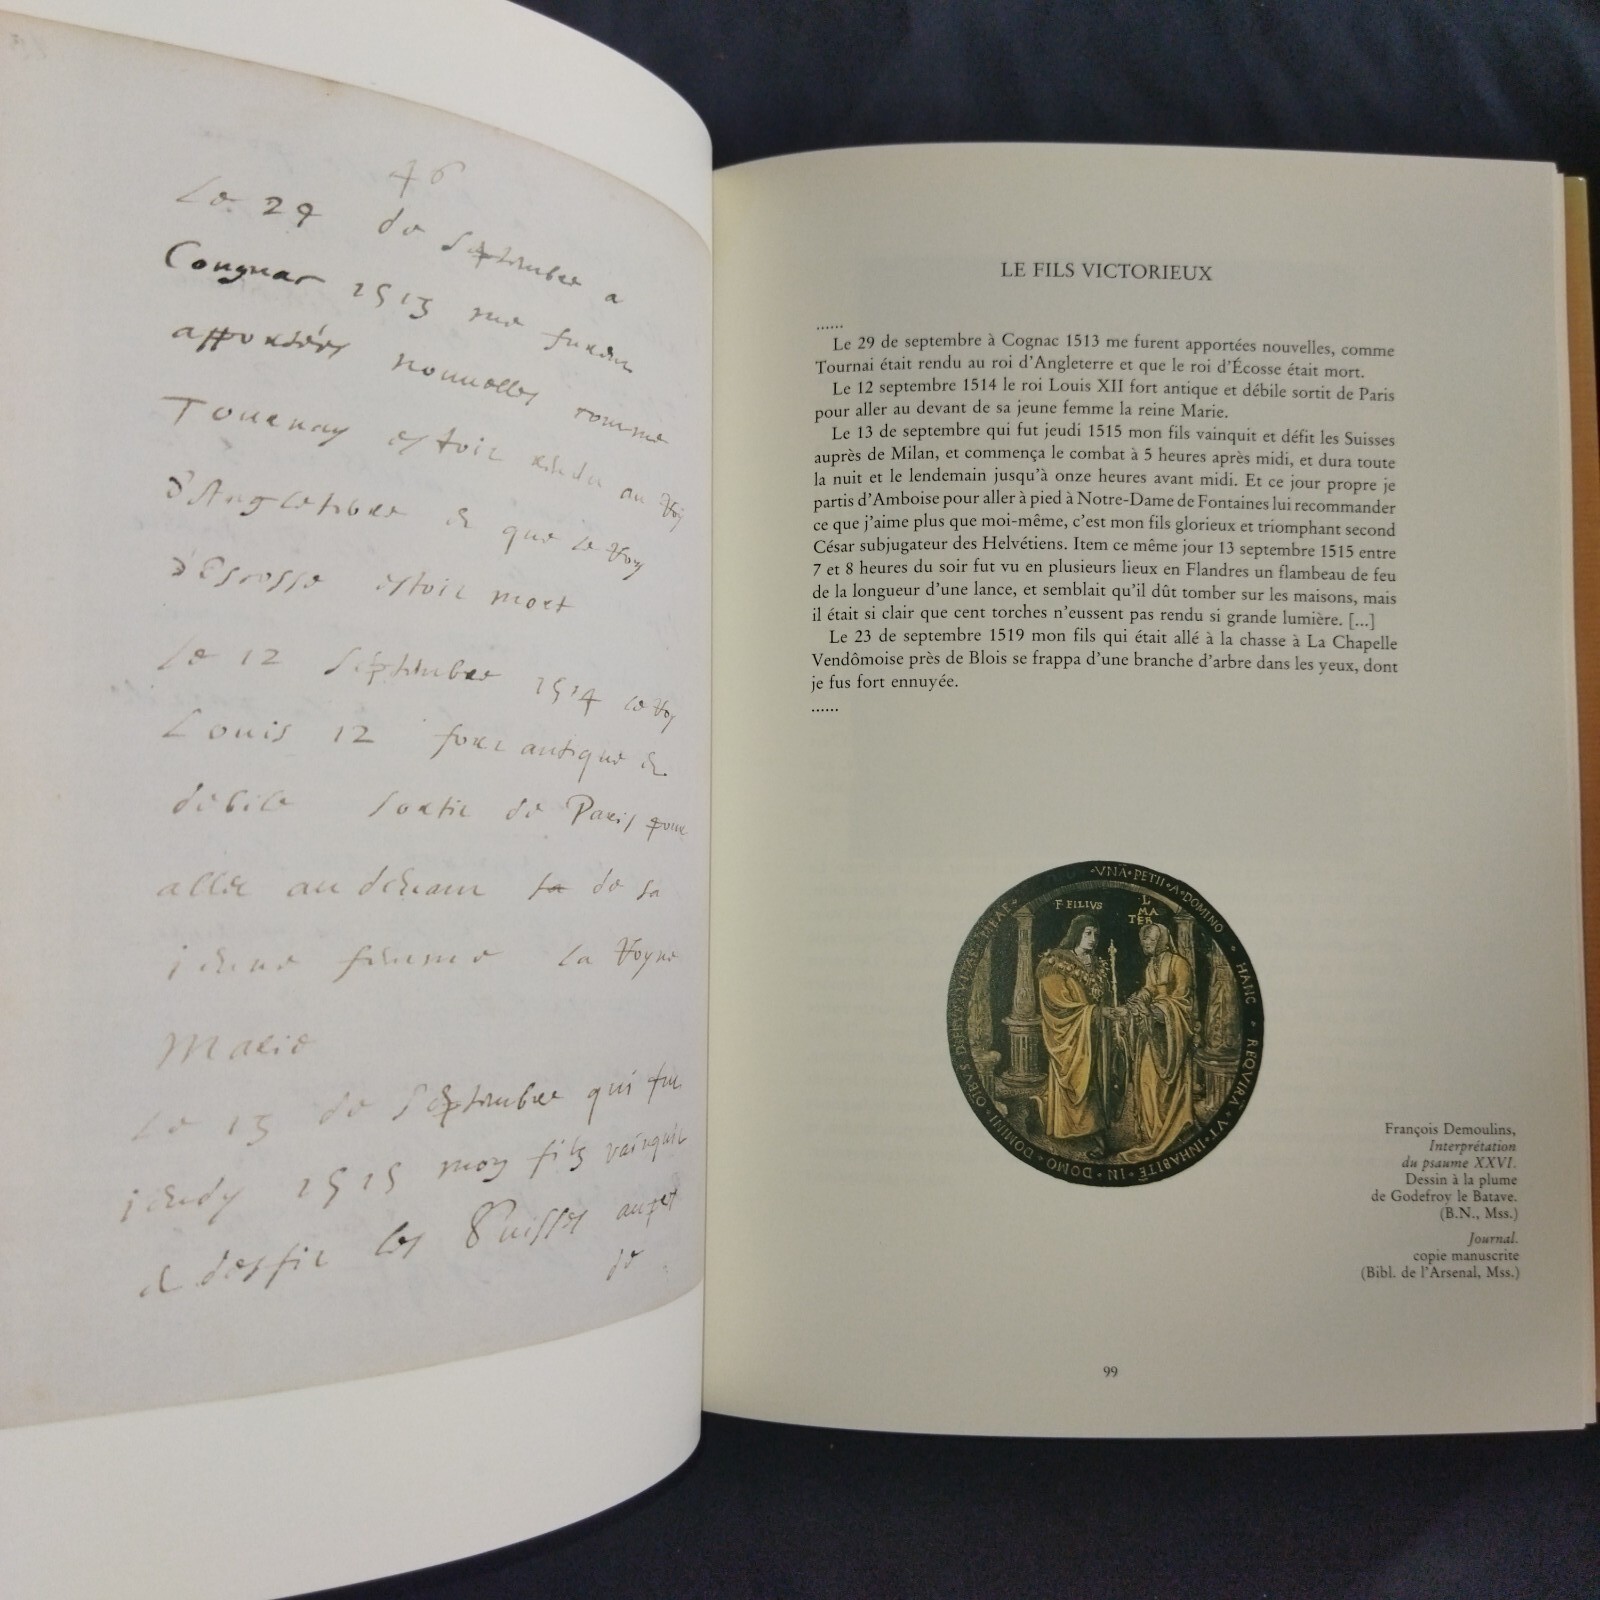 46
Le 29 de septembre a
Congnac 1513 me furent
apportées nouvelles comme
Tournay estoit rendu au Roy
d'Angleterre & que le Roy
d'Escosse estoit mort
Le 12 septembre 1514 le Roy
Louis 12 fort antique &
debile sortit de Paris pour
aller au devant sa de sa
jeune femme la Royne
Marie
Le 13 de septembre qui fut
jeudy 1515 mon fils vainquit
& desfit les Suisses aupres
de
LE FILS VICTORIEUX
......
Le 29 de septembre à Cognac 1513 me furent apportées nouvelles, comme
Tournai était rendu au roi d'Angleterre et que le roi d'Écosse était mort.
Le 12 septembre 1514 le roi Louis XII fort antique et débile sortit de Paris
pour aller au devant de sa jeune femme la reine Marie.
Le 13 de septembre qui fut jeudi 1515 mon fils vainquit et défit les Suisses
auprès de Milan, et commença le combat à 5 heures après midi, et dura toute
la nuit et le lendemain jusqu'à onze heures avant midi. Et ce jour propre je
partis d'Amboise pour aller à pied à Notre-Dame de Fontaines lui recommander
ce que j'aime plus que moi-même, c'est mon fils glorieux et triomphant second
César subjugateur des Helvétiens. Item ce même jour 13 septembre 1515 entre
7 et 8 heures du soir fut vu en plusieurs lieux en Flandres un flambeau de feu
de la longueur d'une lance, et semblait qu'il dût tomber sur les maisons, mais
il était si clair que cent torches n'eussent pas rendu si grande lumière. [...]
Le 23 de septembre 1519 mon fils qui était allé à la chasse à La Chapelle
Vendômoise près de Blois se frappa d'une branche d'arbre dans les yeux, dont
je fus fort ennuyée.
......
VNA • PETII • A • DOMINO • HANC • REQVIRA • VT • INHABITĒ • IN • DOMO • DOMINI •
F FILIVS
L
MA
TER
François Demoulins,
Interprétation
du psaume XXVI.
Dessin à la plume
de Godefroy le Batave.
(B.N., Mss.)
Journal.
copie manuscrite
(Bibl. de l'Arsenal, Mss.)
99